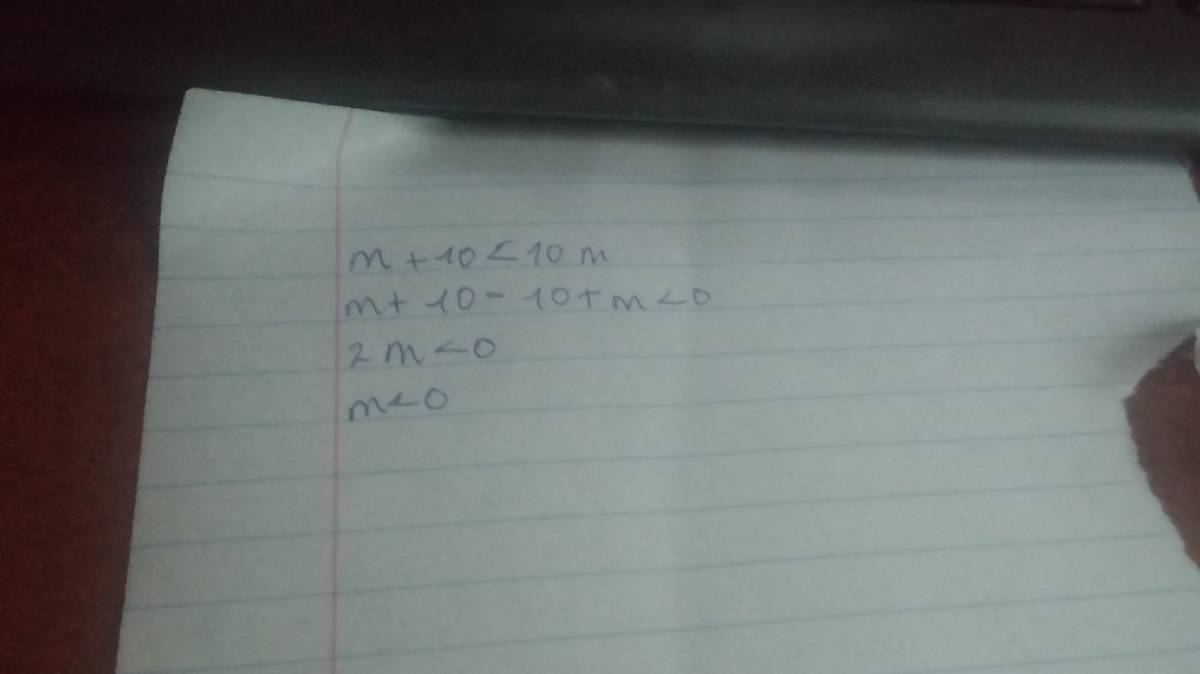 m + 10 < 10 m
m + 10 - 10 + m < 0
2 m < 0
m < 0